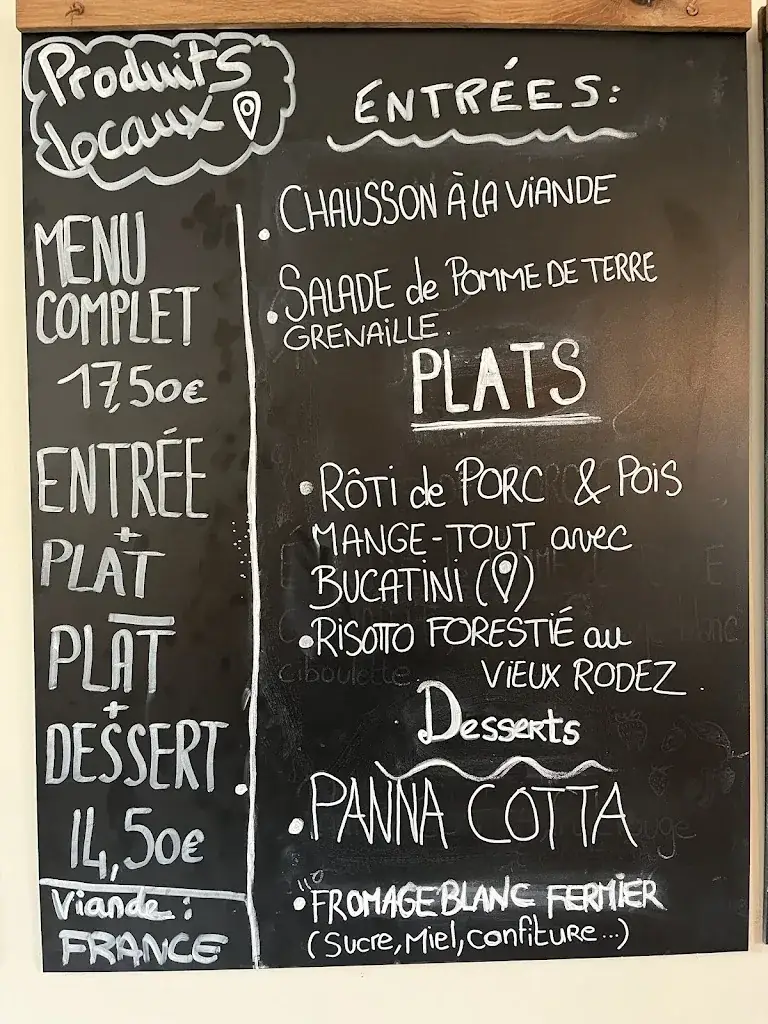 Produits
Locaux
MENU
COMPLET
17,50€
ENTRÉE
+
PLAT
PLAT
+
DESSERT
14,50€
Viande :
FRANCE
ENTRÉES :
• CHAUSSON À LA VIANDE
• SALADE de POMME DE TERRE
GRENAILLE.
PLATS
• RÔTI de PORC & POIS
MANGE-TOUT avec
BUCATINI ( )
• RISOTTO FORESTIÉ au
VIEUX RODEZ.
ciboulette
Desserts
• PANNA COTTA
• FROMAGE BLANC FERMIER
(Sucre, Miel, Confiture...)